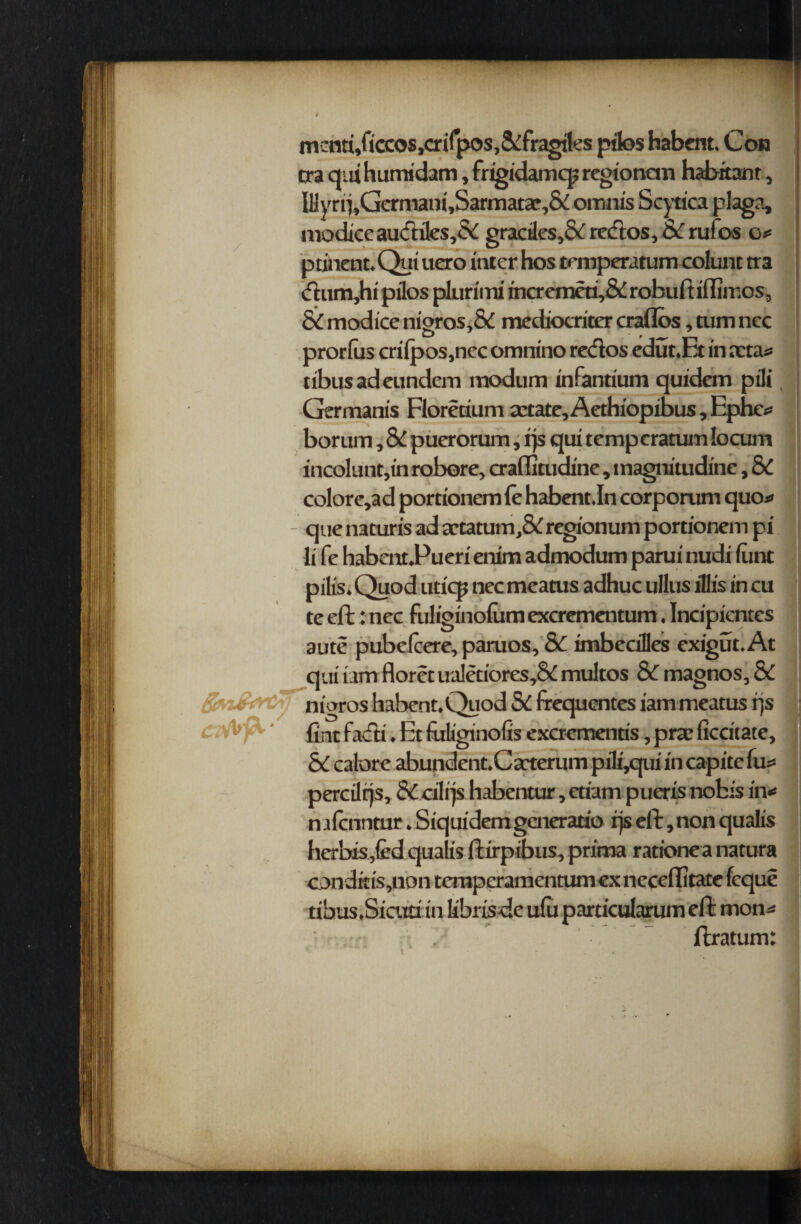 menti,ſiccos,criſpos,&fragiles pilos habent. Con
tra qui humidam, frigidamq; regionem habitant,
Illyrij,Germani,Sarmatæ,& omnis Scytica plaga,
modice auctiles,& graciles,& rectos, & rufos o⸗
ptinent. Qui uero inter hos temperatum colunt tra
ctum,hi pilos plurimi incremẽti,& robuſtiſſimos,
& modice nigros,& mediocriter craſſos, tum nec
prorſus criſpos,nec omnino rectos edũt.Et in æta⸗
tibus ad eundem modum infantium quidem pili
Germanis Florẽtium ætate, Aethiopibus, Ephe⸗
borum, & puerorum, ijs qui temperatum locum
incolunt,in robore, craſſitudine, magnitudine, &
colore,ad portionem ſe habent.In corporum quo⸗
que naturis ad ætatum,& regionum portionem pi
li ſe habent.Pueri enim admodum parui nudi ſunt
pilis. Quod utiq; nec meatus adhuc ullus illis in cu
te eſt: nec fuliginoſum excrementum. Incipientes
autẽ pubeſcere, paruos, & imbecilles exigũt. At
qui iam florẽt ualẽtiores,& multos & magnos, &
nigros habent. Quod & frequentes iam meatus ijs
ſint facti. Et fuliginoſis excrementis, præ ſiccitate,
& calore abundent.Cæterum pili,qui in capite ſu⸗
percilijs, & cilijs habentur, etiam pueris nobis in⸗
naſcuntur. Siquidem generatio ijs eſt, non qualis
herbis,ſed qualis ſtirpibus, prima ratione a natura
conditis,non temperamentum ex neceſſitate ſequẽ
tibus.Sicuti in libris de uſu particularum eſt mon⸗
ſtratum: